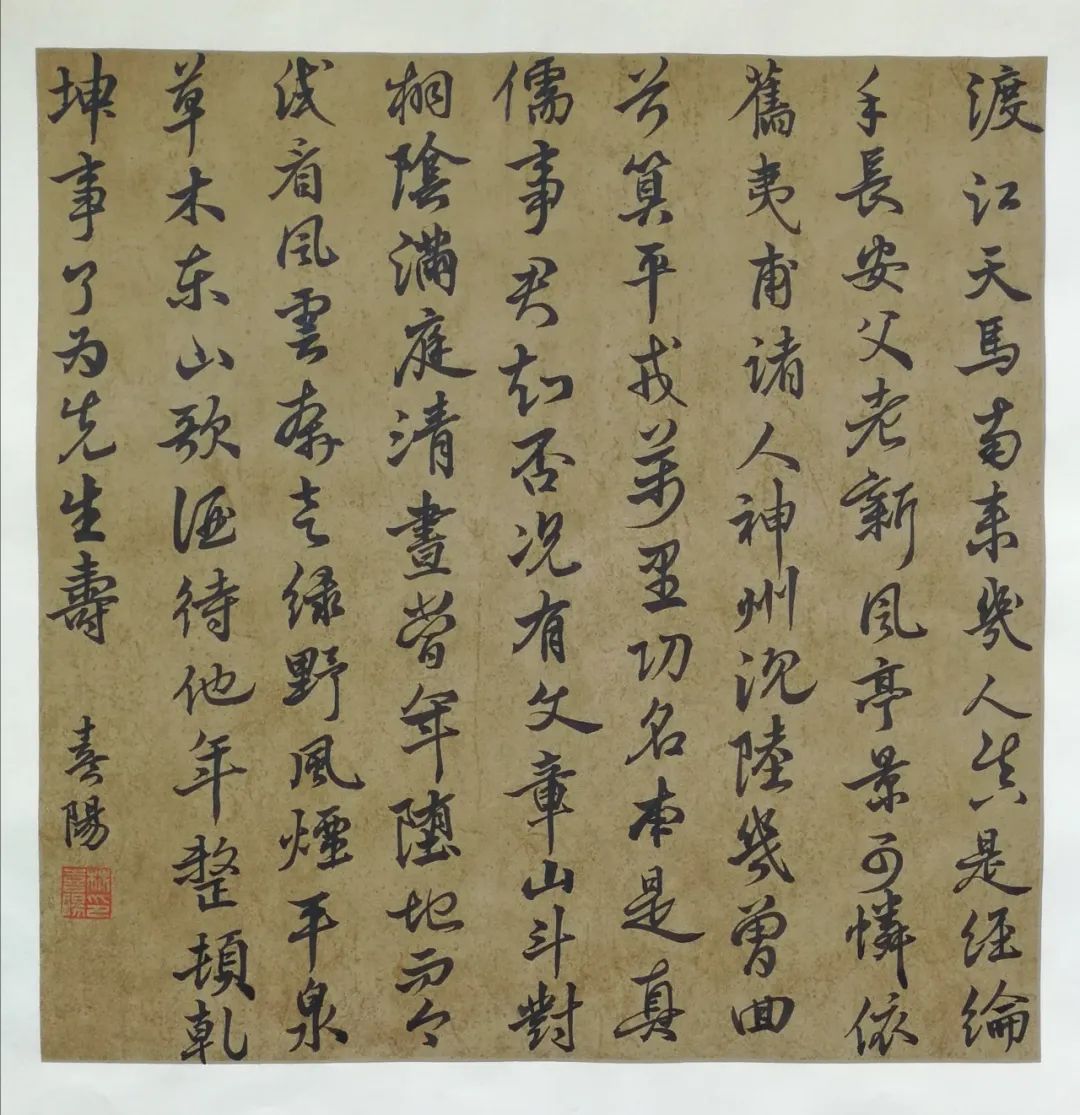 渡江天馬南來幾人真是經綸
手長安父老新風亭景可憐依
舊夷甫諸人神州沉陸幾曾回
首算平戎萬里功名本是真
儒事君知否況有文章山斗對
桐陰滿庭清晝當年墮地而今
試看風雲奔走綠野風煙平泉
草木東山歌酒待他年整頓乾
坤事了為先生壽
熹陽